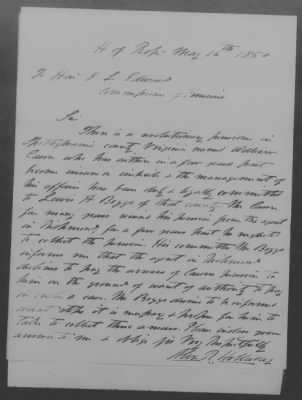 H of Reps May 16th 1850
To Hon J L Edwards
Commissioner of Pensions
Sir
There is a revolutionary pensioner in
Spottsylvania county Virginia named William
Cason who has within a few years past
become insane & the management of
his affairs has been duly & legally committed
to Lewis A Boggs of that county Mr Cason
for many years received his pension from the agent
in Richmond for a few years past he neglected
to collect the pension His committee Mr Boggs
informs me that the agent in Richmond
declines to pay the arrears of Cason pension to
him on the ground of want of authority to pay
in such a case. Mr Boggs desires to be informed
what steps it is necessary & proper for him to
take to collect these arrears. Please your
answer to me & oblige yrs Very Respectfully
Alex R. Holladay